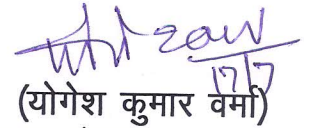 17/7
(योगेश कुमार वर्मा)